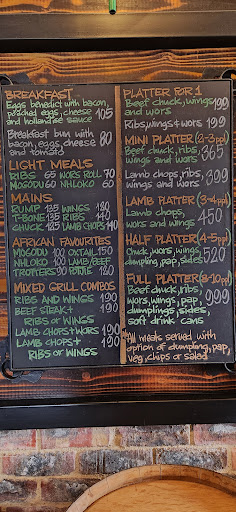 BREAKFAST
Eggs benedict with bacon,
poached eggs, cheese 105
and hollandaise sauce
Breakfast bun with
bacon, eggs, cheese 80
and tomato
LIGHT MEALS
RIBS 65 WORS ROLL 70
MOGODU 50 NHLOKO 60
MAINS
RUMP 135 WINGS 180
T-BONE 135 RIBS 440
CHUCK 125 LAMB CHOPS 140
AFRICAN FAVOURITES
MOGODU 100 OXTAIL 150
NHLOKO 100 LAMB/BEEF
TROTTERS 90
MIXED GRILL COMBOS
RIBS AND WINGS 190
BEEF STEAK+ 190
RIBS OR WINGS
LAMB CHOPS+WORS 190
LAMB CHOPS+ 190
RIBS OR WINGS
PLATTER FOR 1
Beef chuck, wings 199
and wors
Ribs, wings & wors 199
MINI PLATTER (2-3ppl)
Beef chuck, ribs, 365
wings and wors
Lamb chops, ribs, 399
wings and wors
LAMB PLATTER (3-4ppl)
Lamb chops, 450
wors and wings
HALF PLATTER (4-5ppl)
Chuck, wors, wings, 520
dumpling, pap, sides
FULL PLATTER (8-10ppl)
Beef chuck, ribs, 999
wors, wings, pap,
dumplings, sides,
soft drink cans
All meals served with
option of dumpling, pap,
veg, chips or salad